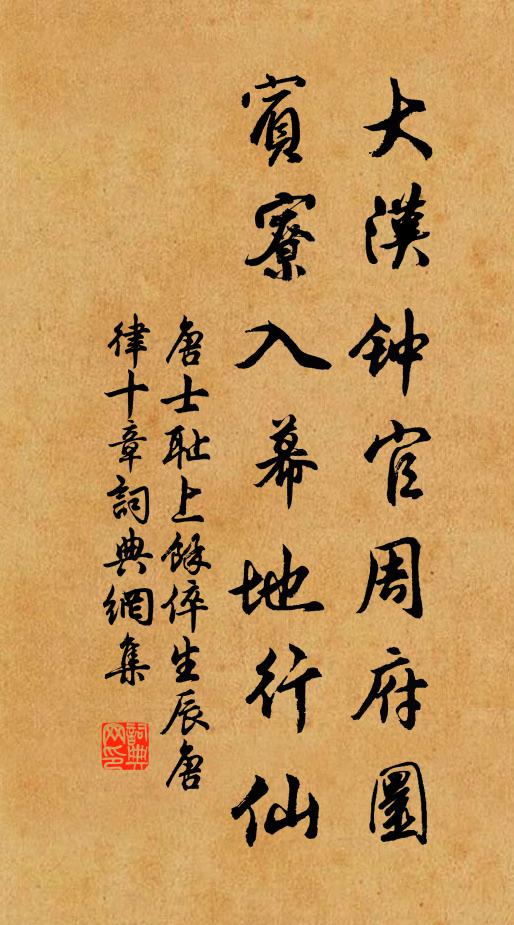 大漢钟官周府圜
賓寮入幕地行仙
唐士耻上餘倅生辰唐
律十章詞典網集
詞典
网印